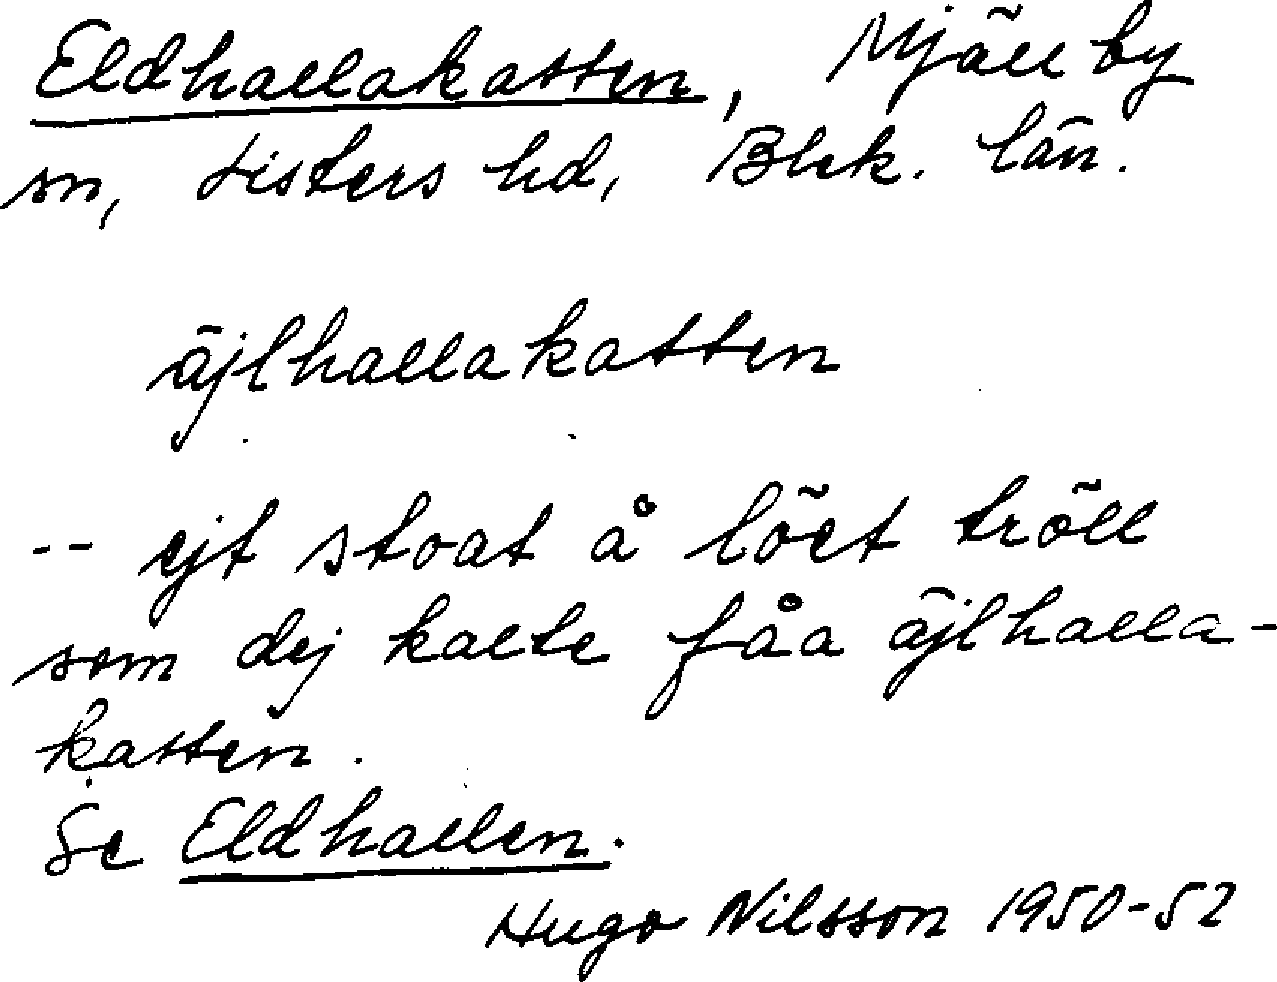 Eldhallakatten, Mjällby
sn, Listers hd, Blek. län.
äjlhallakatten
-- ejt stoat å löet tröll
som dej kalte fåa äjlhalla-
katten.
Se Eldhallen.
Hugo Nilsson 1950-52